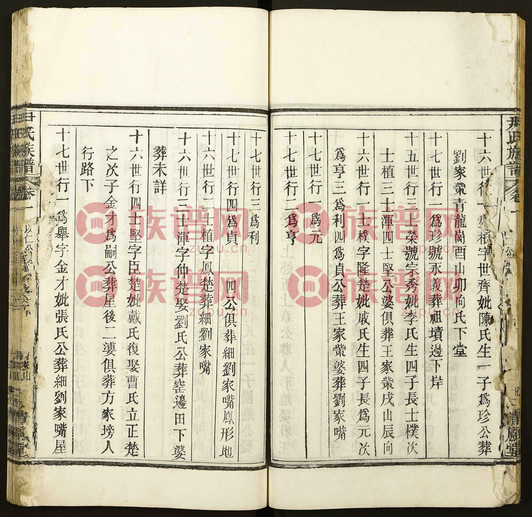 尹氏族譜
十六世行一 字世齊妣陳氏生一子爲珍公葬
劉家衆青龍 酉山卯向氏下堂
十七世行一爲珍號永 葬祖墳邊下岸
十五世行三 榮號宗秀妣李氏生四子長士樸次
士植三士渾四士堅公婆俱葬王家 戌山辰向
十六世行一士樸字隆楚妣戚氏生四子長爲元次
爲亨三公利四爲貞公葬王家 婆葬劉家嘴
十七世行一爲元
十七世行一爲亨
十七世行三爲利
十七世行四爲貞 四公俱葬細劉家嘴鳳形地
十六世行二士植字鳳楚葬細劉家嘴
十六世行三士渾字仲楚娶劉氏公葬窑邊田下婆
葬未詳
十六世行四士堅字臣楚妣戴氏復娶曹氏立正楚
之次子金才爲嗣公葬屋後二婆俱葬方家塝人
行路下
十七世行一爲舉字金才妣張氏公葬細劉家嘴屋
尹氏族譜
族譜网